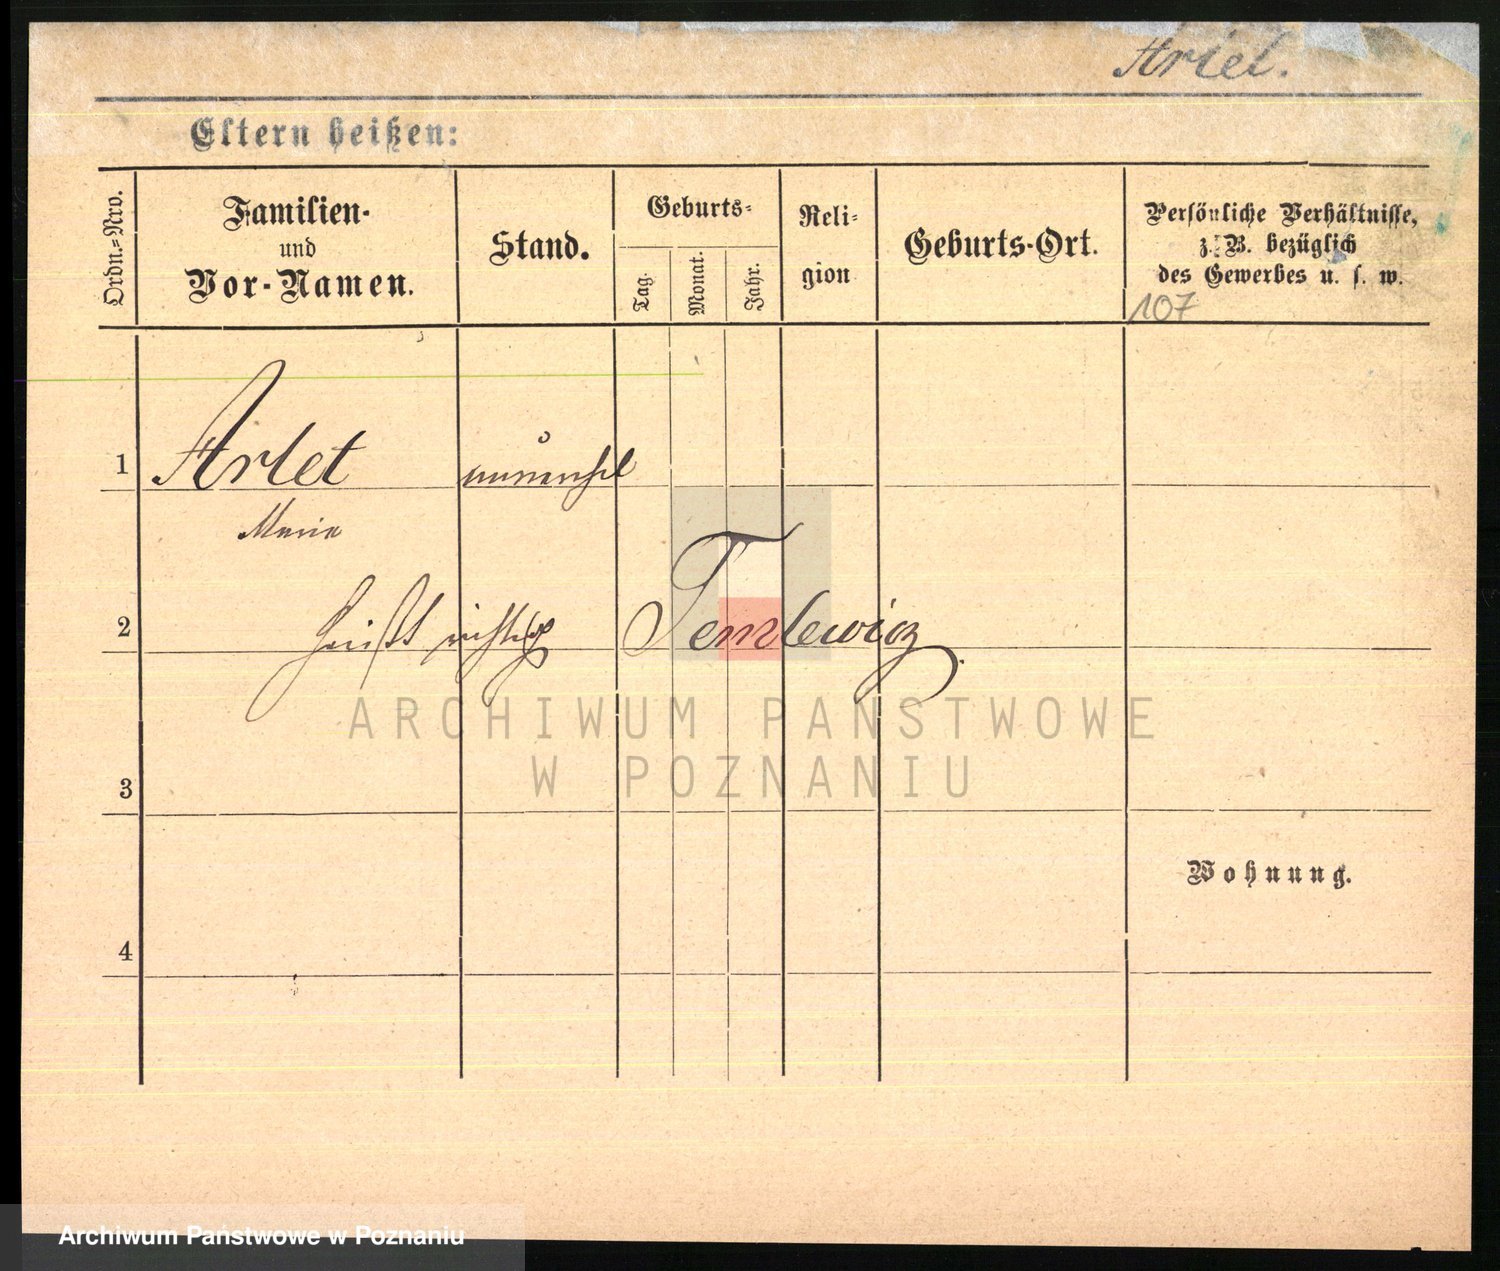 Ariel.
Eltern heißen:
Ordn.=Nro.
Familien-
und
Vor-Namen.
Stand.
Geburts-
Tag.
Monat.
Jahr.
Reli-
gion
Geburts-Ort.
Persönliche Verhältnisse,
z. B. bezüglich
des Gewerbes u. s. w.
107
1 Arlet unverehel
Maria
2 heißt richtig Temlewicz
ARCHIWUM PAŃSTWOWE
W POZNANIU
3
Wohnung.
4
Archiwum Państwowe w Poznaniu